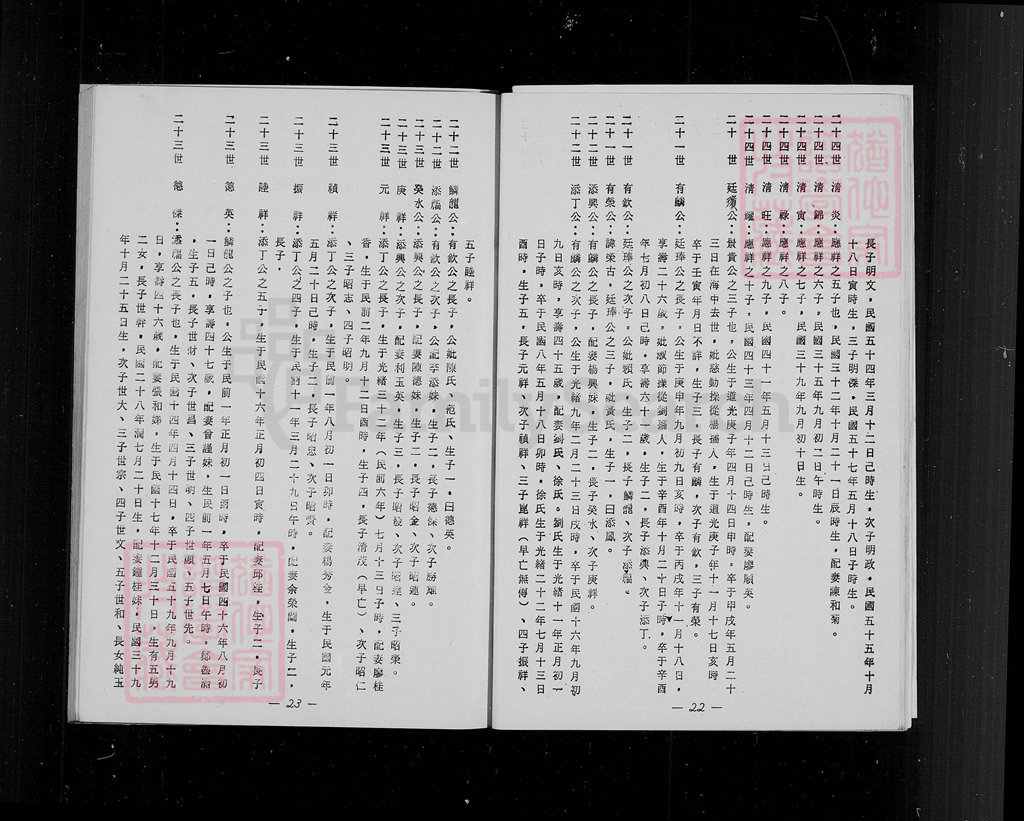 長子明文，民國五十四年三月十二日己時生，次子明政，民國五十五年十月
十八日寅時生，三子明深，民國五十七年五月十八日子時生。
二十四世　清　炎：應祥之五子也，民國三十二年十月二十一日辰時生，配妻陳和菊。
二十四世　清　錦：應祥之六子，民國三十五年九月初二日午時生。
二十四世　清　寅：應祥之七子，民國三十九年九月初十日生。
二十四世　清　祿：應祥之八子。
二十四世　清　旺：應祥之九子，民國四十一年五月十三日己時生。
二十四世　清　耀：應祥之十子，民國四十三年四月十二日己時生，配妻廖順英。
二十　世　廷　公：景貴公之三子也，公生于道光庚子年四月十四日申時，卒于甲戌年五月二十
三日在海中去世，妣慈勤操從楊孺人，生于道光庚子年十一月十七日亥時
卒于壬寅年月日不詳，生子三，長子有麟，次子有欽，三子有榮。
二十一世　有麟公：廷琫公之長子，公生于庚申年九月初九日亥時，卒于丙戌年十一月十八日，
享壽二十六歲，妣淑節操從劉孺人，生于辛酉年十月二十日子時，卒于辛酉
年七月初八日己時，享壽六十一歲，生子二，長子添興、次子添丁。
二十一世　有欽公：廷琫公之次子，公妣賴氏，生子二，長子麟龍、次子添福。
二十一世　有榮公：諱榮古，廷琫公之三子，妣黃氏，生子一，曰添鳳。
二十二世　添興公：有麟公之長子，配妻楊興妹，生子二，長子癸水、次子庚祥。
二十二世　添丁公：有麟公之次子，公生于光緒九年二月二十三日戌時，卒于民國十六年九月初
九日亥時，享壽四十五歲，配妻劉氏、徐氏。劉氏生于光緒十一年正月初一
日子時，卒于民國八年五月十八日卯時，徐氏生于光緒二十二年七月十三日
酉時，生子五，長子元祥、次子禎祥、三子崑祥（早亡無傳）、四子振祥、
— 22 —
五子陸祥。
二十二世　麟龍公：有欽公之長子，公妣陳氏、范氏，生子一，曰德英。
二十二世　添福公：有欽公之次子，公配卒添妹，生子二，長子德傑、次子勝雄。
二十三世　癸水公：添興公之長子，配妻陳德妹，生子二，長子昭金、次子昭運。
二十三世　庚　祥：添興公之次子，配妻利玉英，生子三，長子昭毅、次子昭運、三子昭榮。
二十三世　元　祥：添丁公之長子，生于光緒三十二年（民前六年）七月十三日子時，配妻廖桂
香，生于民前二年九月十二日酉時，生子四，長子清茂（早亡）、次子昭仁
、三子昭志、四子昭明。
二十三世　禎　祥：添丁公之次子，生于民前一年八月初一日卯時，配妻楊秀金，生于民國元年
五月二十日己時，生子二，長子昭忠、次子昭賢。
二十三世　振　祥：添丁公之四子，生于民國十一年三月二十九日午時，配妻余榮蘭，生子二，
長子，
二十三世　陸　祥：添丁公之五子，生于民國十六年正月初四日寅時，配妻邱桂，生子二，長子
二十三世　德　英：麟龍公之子也，公生于民前一年正月初一日酉時，卒于民國四十六年八月初
一日己時，享壽四十七歲，配妻曾謹妹，生民前一年五月七日午時，鄉
，生子五，長子世財、次子世昌、三子世明、四子世顯、五子世先。
二十三世　德　傑：添福公之長子也，生于民國十四年四月十四日，卒于民國五十九年九月十九
日，享壽四十六歲，配妻張和娣，生于民國十七年十二月三十日，生有五男
二女，長子世幹，民國二十八年潤七月二十日生，配妻鐘桂妹，民國三十九
年十月二十五日生，次子世大、三子世宗、四子世文、五子世和、長女純玉
— 23 —
FamilySearch